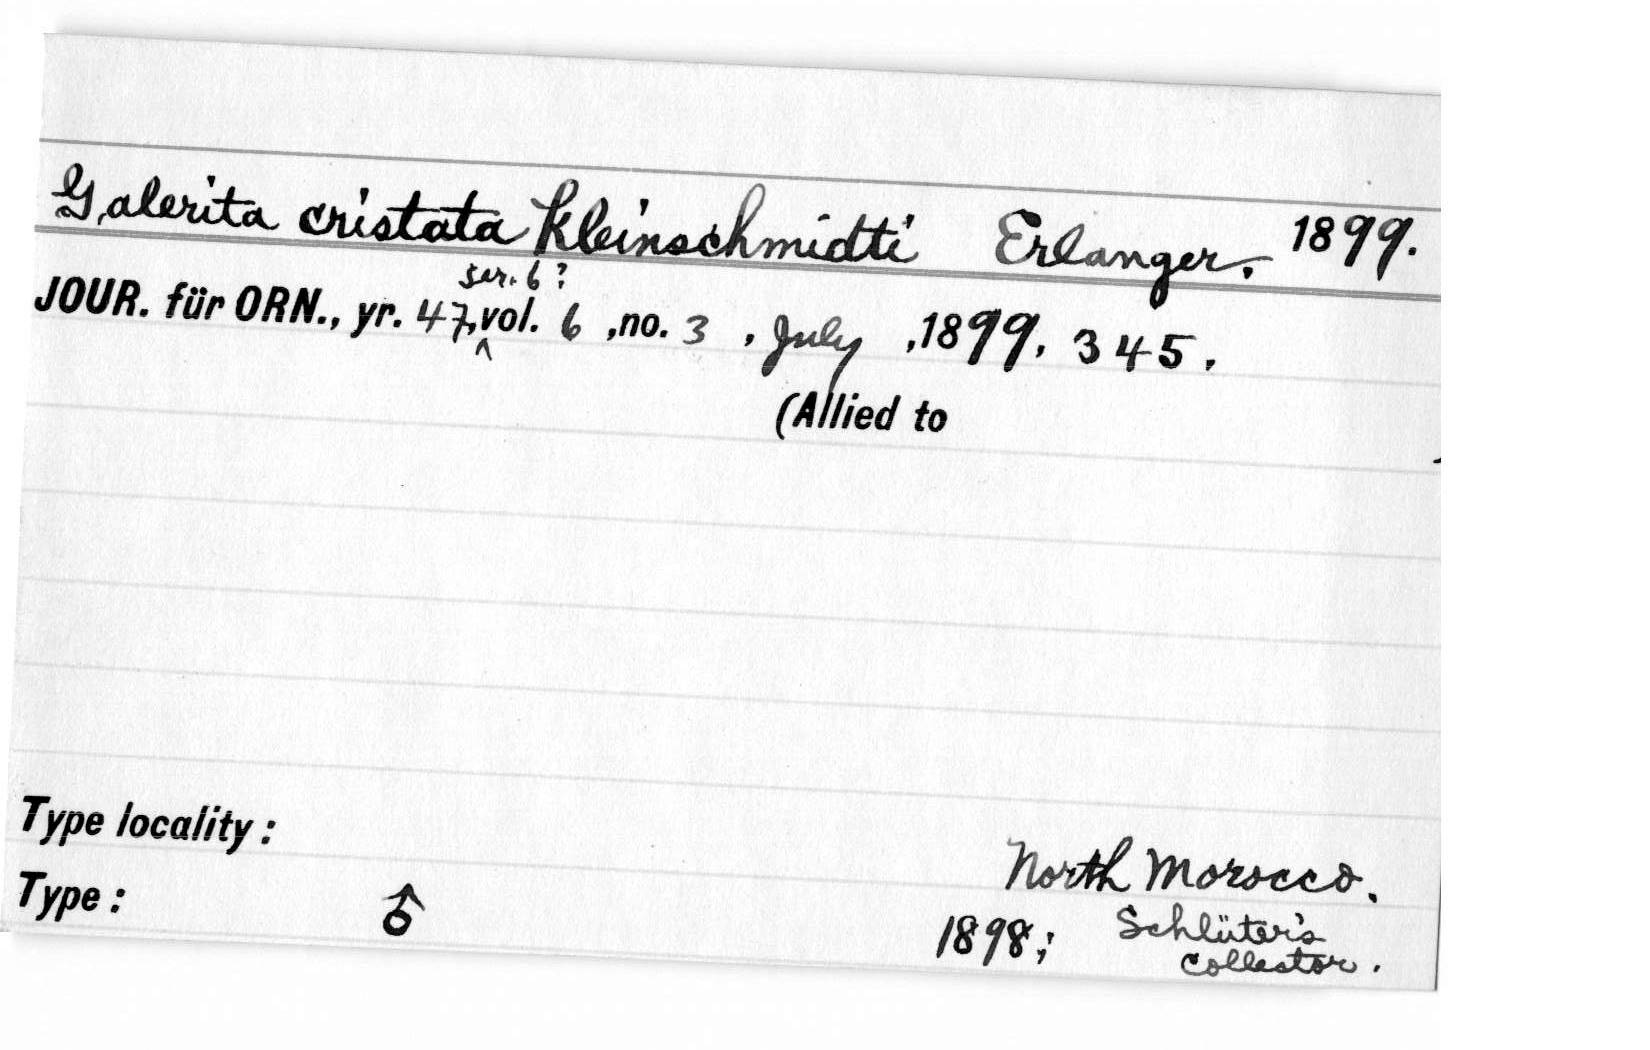 Galerita cristata Kleinschmidti Erlanger. 1899.
ser. 6?
JOUR. für ORN., yr. 47, vol. 6 ,no. 3 , July ,1899, 345.
(Allied to
Type locality:
North Morocco.
Type: ♂ 1898; Schlüter's
collector.